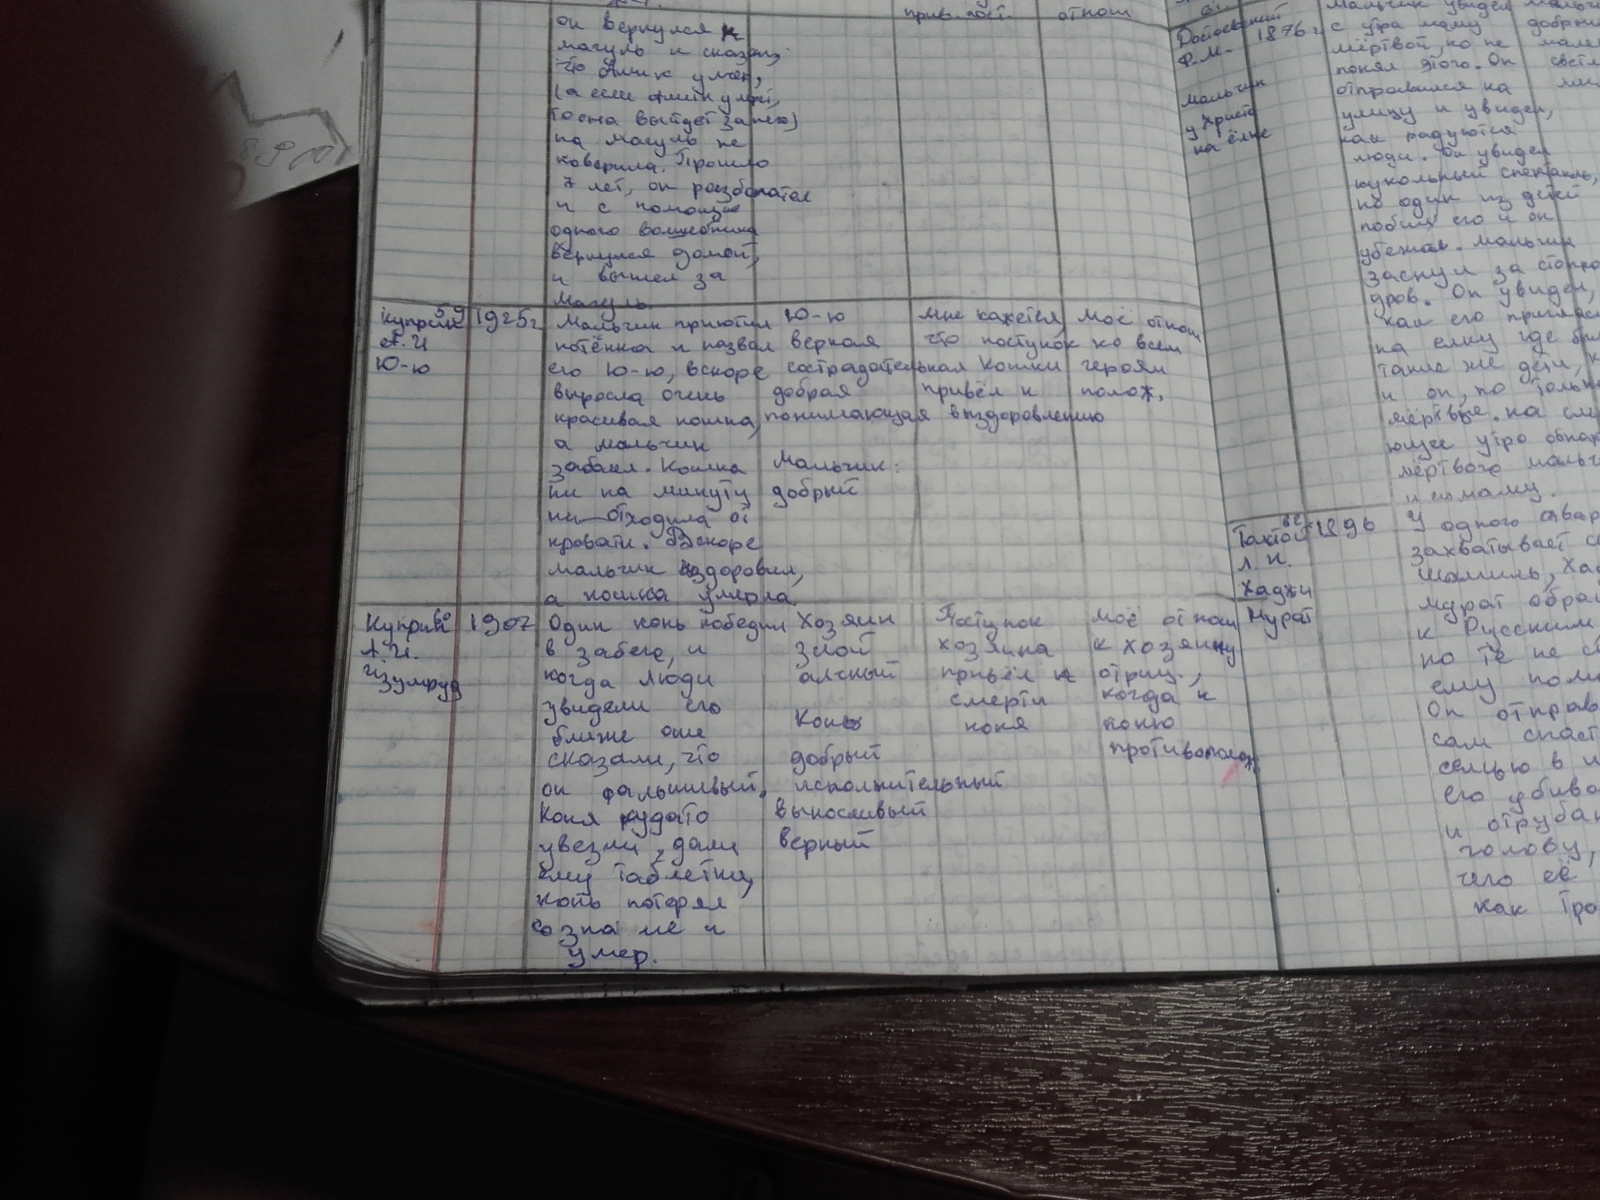 прив. пост. отнош
он вернулся к
магуль и сказал,
что Ашик умер,
(а если Ашик умрёт,
то она выйдет за него)
на Магуль не
поверила. Прошло
7 лет, он разбогател
и с помощью
одного волшебника
вернулся домой,
и вышел за
Магуль.
Куприн 59
А. И
Ю-ю
1925г.
Мальчик приютил
котёнка и назвал
его Ю-ю, вскоре
выросла очень
красивая кошка,
а мальчик
забоел. Кошка
ни на минуту
не отходила от
кровати. Вскоре
мальчик выздоровил,
а кошка умерла.
Ю-ю
верная
сострадательная
добрая
понимающая
Мальчик:
добрый
мне кажется,
что поступок
кошки
привёл к
выздоровлению
моё отнош
ко всем
героям
полож.
Куприн 60
А. И.
Изумруд
1907
Один конь победил
в забеге, и
когда люди
увидели его
ближе они
сказали, что
он фальшивый.
Коня кудато
увезли, дали
ему таблетки,
конь потерял
созна ие и
умер.
Хозяин
злой
алчный
Конь
добрый
исполнительный
выносливый
верный
Поступок
хозяина
привёл к
смерти
коня
моё отнош
к хозяину
отриц.,
когда к
коню
противополож.
61
Достоевский
Ф. М. 1876 г.
мальчик
у Христа
на ёлке
Мальчик увидел
с утра маму
мёртвой, но не
понял этого. Он
отправился на
улицу и увидел,
как радуются
люди. Он увидел
кукольный спектакль,
но один из детей
побил его и он
убежал. Мальчик
заснул за стопкой
дров. Он увидел,
как его приглас
на ёлку где были
такие же дети, к
и он, но только
мёртвые. на след
ующее утро обнар
мёртвого мальч
и его маму.
мальчи
добрый
Толстой 62
Л. Н.
Хаджи
Мурат
1896
У одного
захватывает се
Шамиль, Ха
Мурат обра
к Русским
но те не с
ему помо
Он отправ
сам спаст
семью в и
его убива
и отрубаю
голову,
чего её
как тро